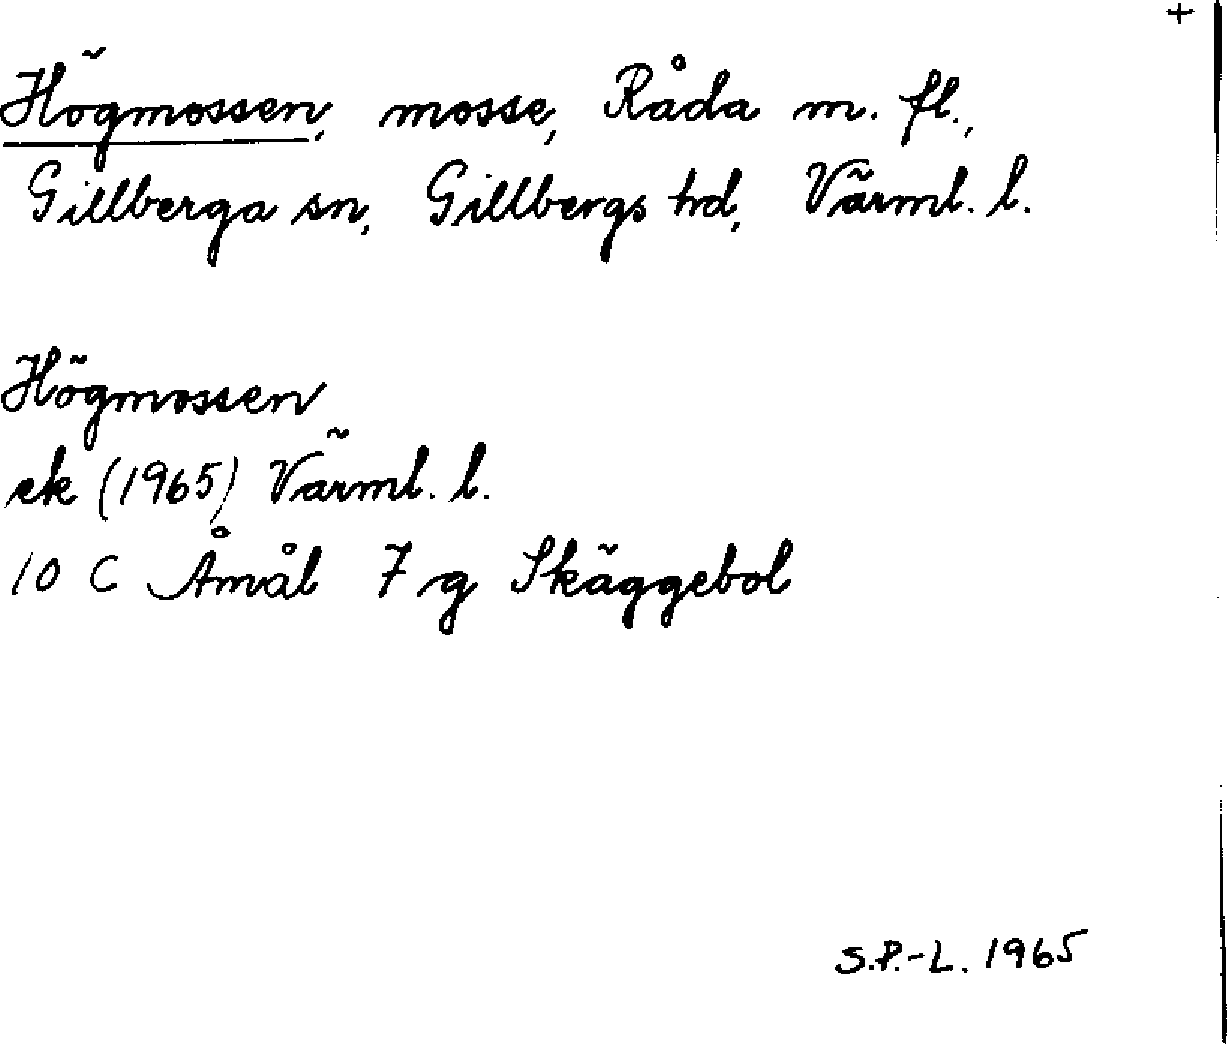 +
Högmossen, mosse, Råda m. fl.,
Gillberga sn, Gillbergs hd, Värml. l.
Högmossen
ek (1965) Värml. l.
10 C Åmål 7 g Skäggebol
S.P.-L. 1965